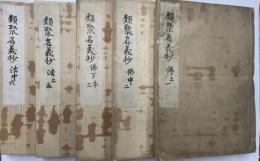 類聚名義抄 佛上一
類聚名義抄 佛中二
類聚名義抄 佛下本三
類聚名義抄 法上五
類聚名義抄 法中六